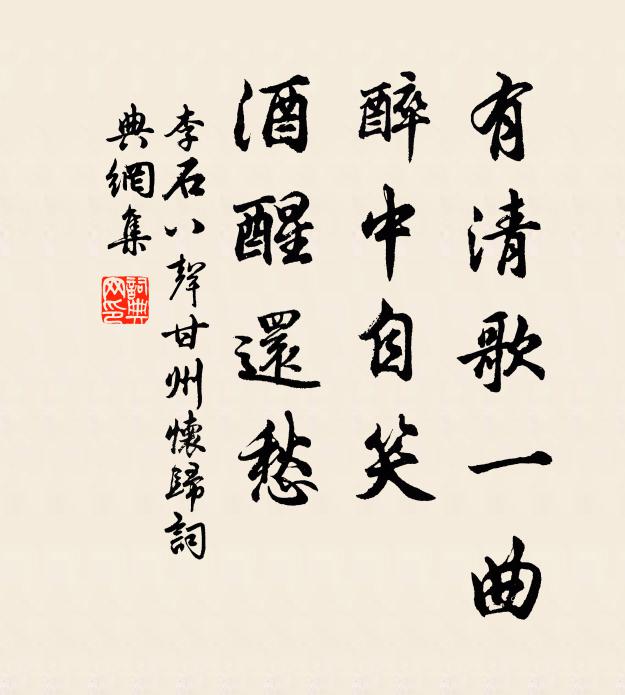 有清歌一曲
醉中自笑
酒醒還愁
李石八聲甘州懷歸詞
典網集
詞典
网印